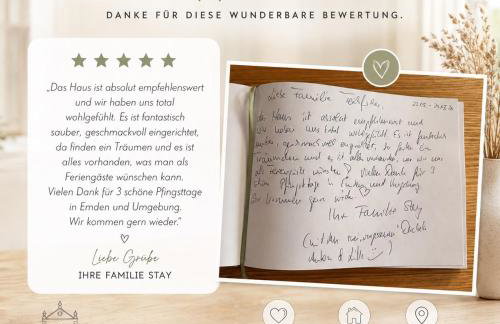 DANKE FÜR DIESE WUNDERBARE BEWERTUNG.
„Das Haus ist absolut empfehlenswert
und wir haben uns total
wohlgefühlt. Es ist fantastisch
sauber, geschmackvoll eingerichtet,
da finden ein Träumen und es ist
alles vorhanden, was man als
Feriengäste wünschen kann.
Vielen Dank für 3 schöne Pfingsttage
in Emden und Umgebung.
Wir kommen gern wieder.“
Liebe Grüße
IHRE FAMILIE STAY
Liebe Familie
Haus ist absolut empfehlenswert und
wir haben uns total wohlgefühlt. Es ist fantastisch
und es ist alles vorhanden, was
Vielen Dank für 3
Pfingsttage in Emden und Umgebung
kommen gern wieder
Ihre Familie Stay